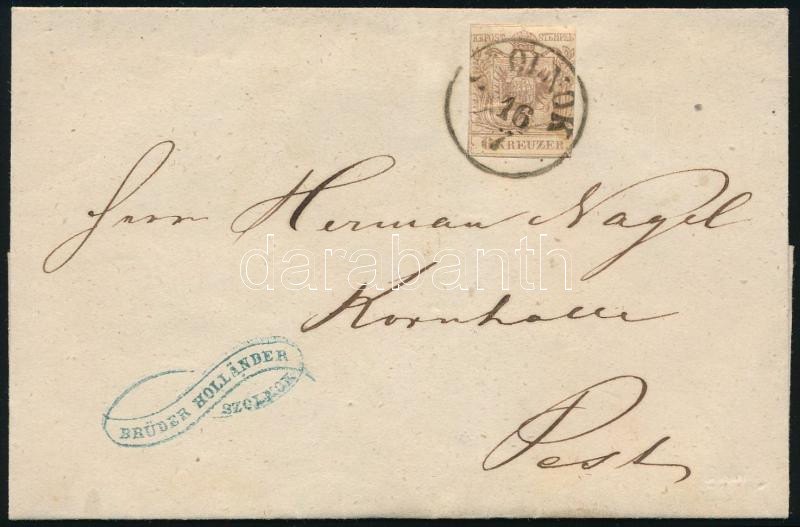 KKPOST-STEMPEL
OLNOK
16
6 KREUZER
Herrn Herman Nagel
darabanth
Kornhalle
BRÜDER HOLLÄNDER
SZOLNOK
Pest